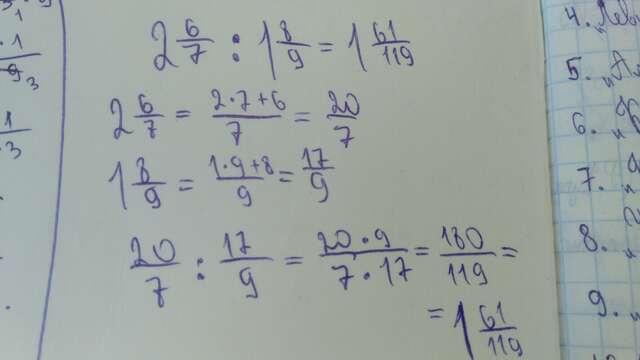 2 6/7 : 1 8/9 = 1 61/119
2 6/7 = 2·7+6/7 = 20/7
1 8/9 = 1·9+8/9 = 17/9
20/7 : 17/9 = 20·9/7·17 = 180/119 =
= 1 61/119
4.
5.
6.
7.
8.
9.